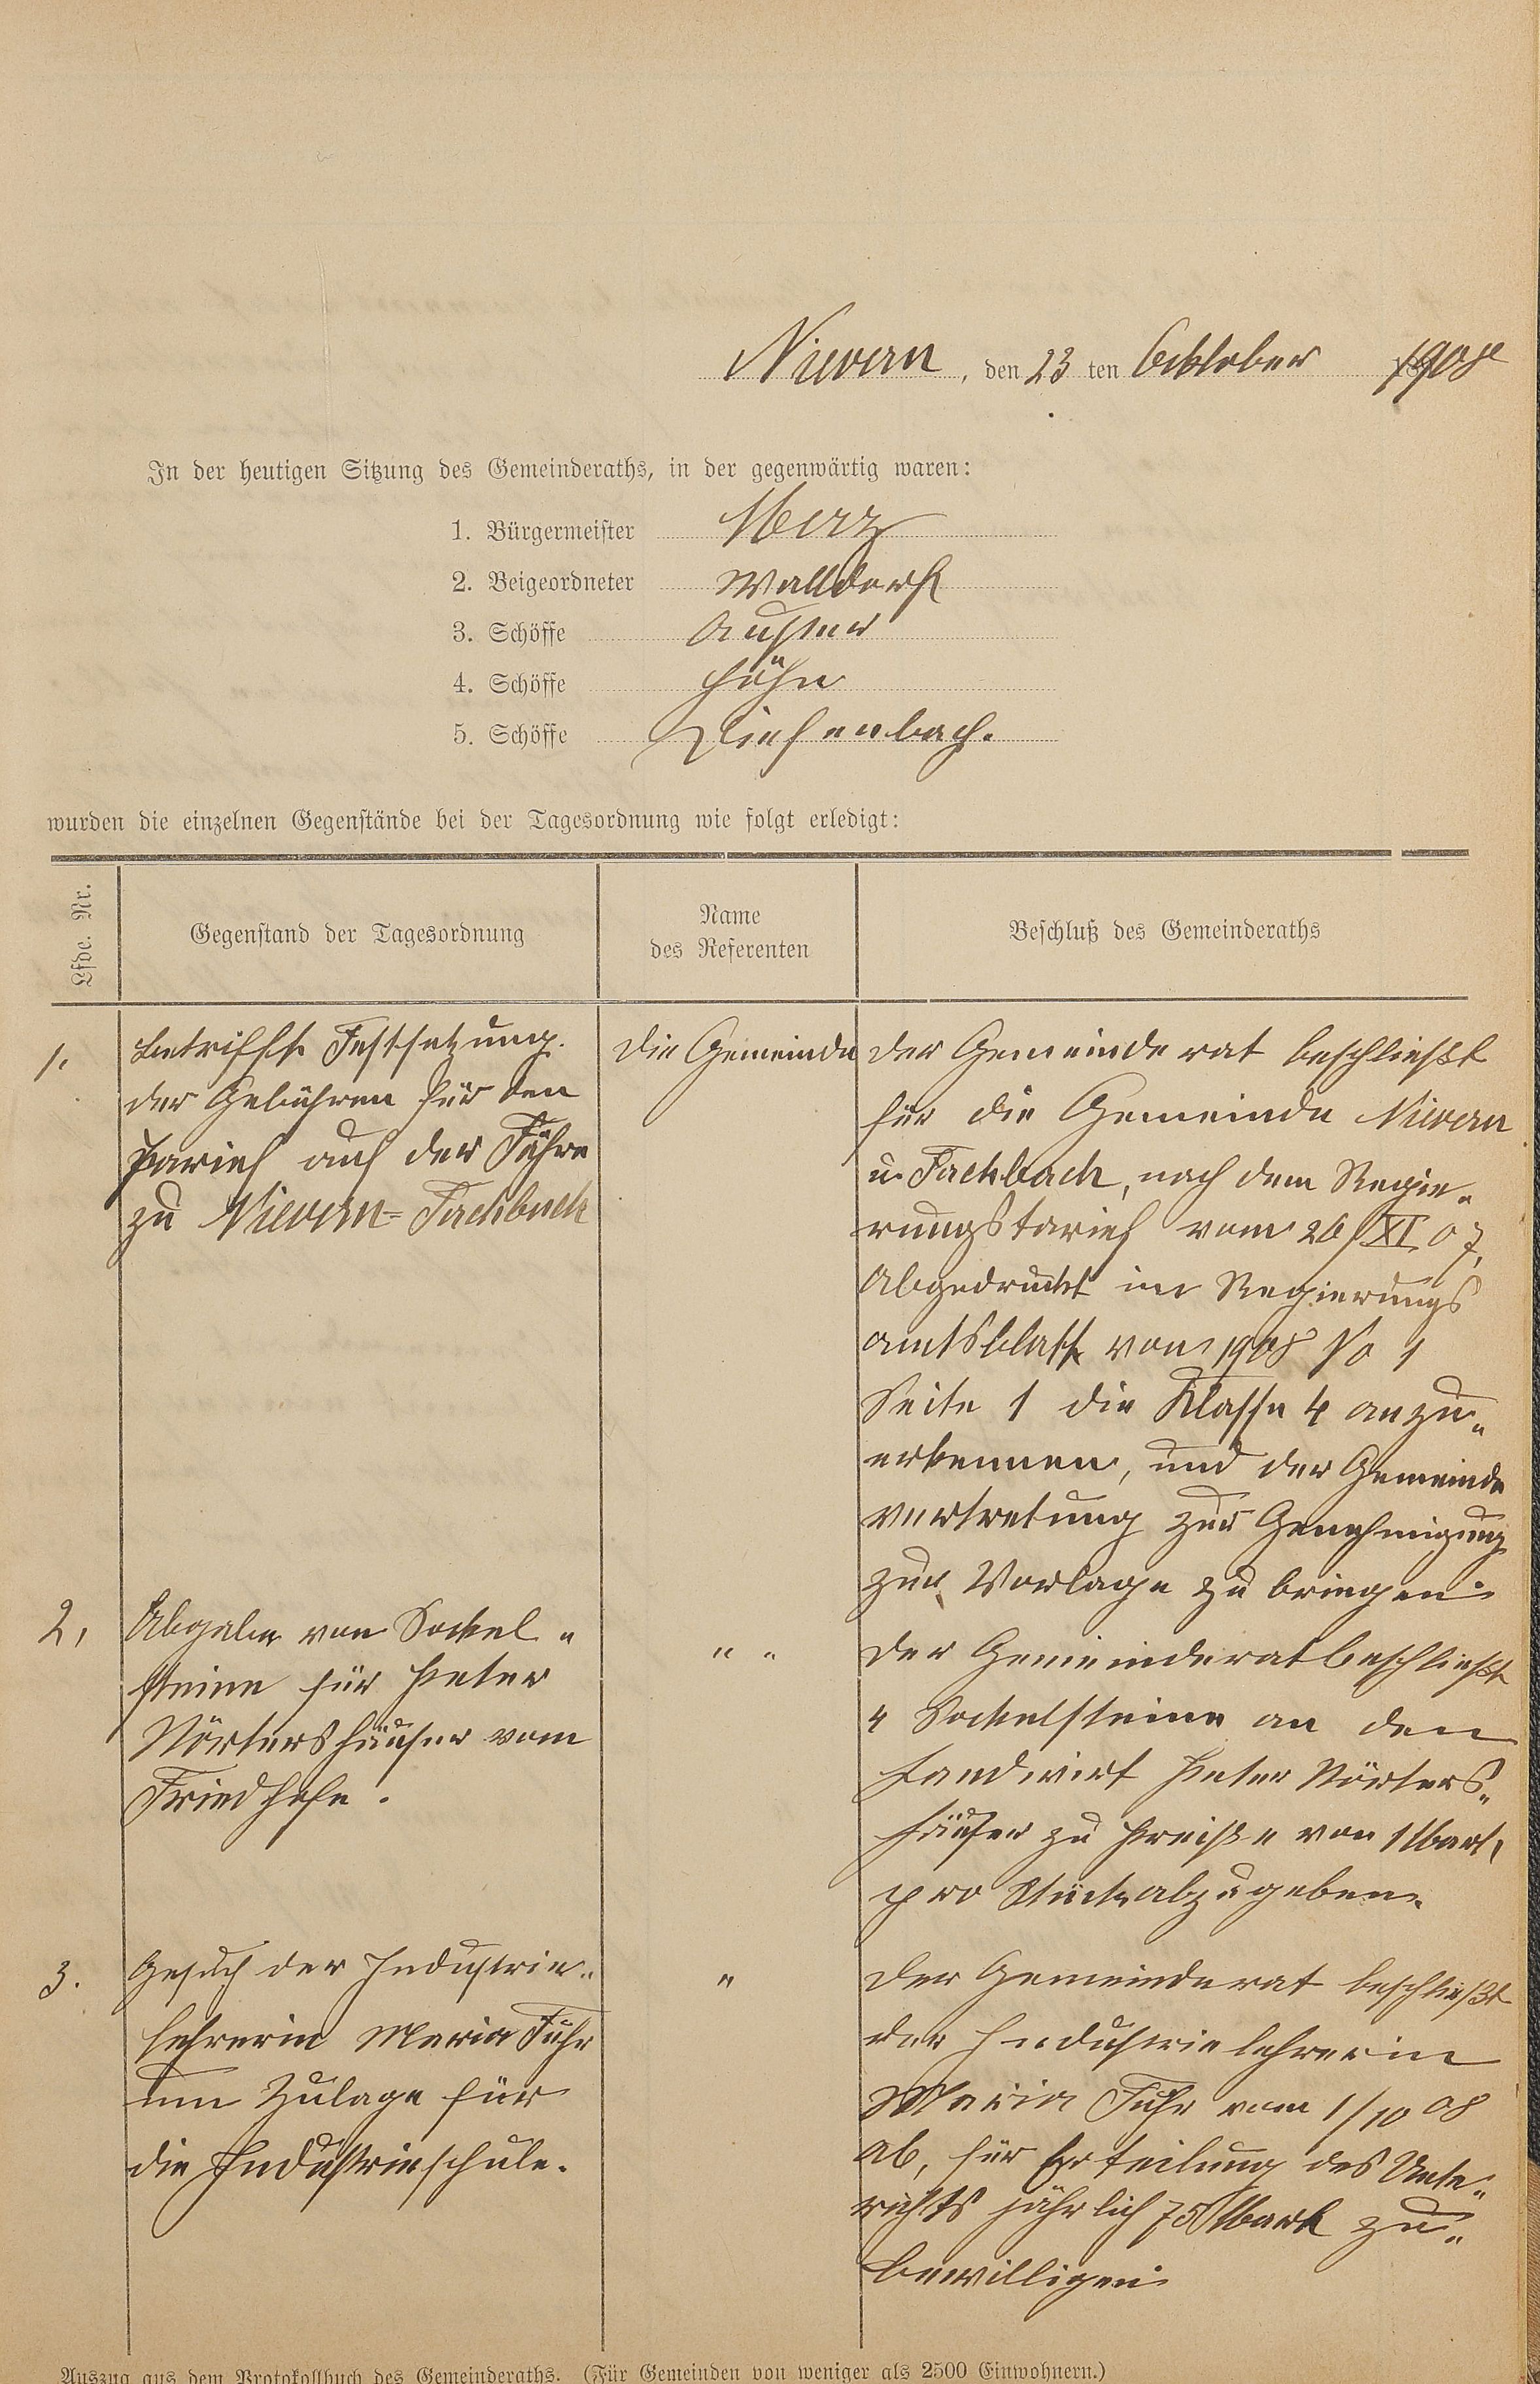 Nievern, den 23 ten Octtober 1908
In der heutigen Sitzung des Gemeinderaths, in der gegenwärtig waren:
1. Bürgermeister Merz
2. Beigeordneter Walldorf
3. Schöffe
4. Schöffe Höhn
5. Schöffe Diefenbach.
wurden die einzelnen Gegenstände bei der Tagesordnung wie folgt erledigt:
Lfde. Nr.
Gegenstand der Tagesordnung
Name
des Referenten
Beschluß des Gemeinderaths
1.
Betrifft Festsetzung
der Gebühren für den
Tarief auf der Fähre
zu Nievern-Fachbach
Die Gemeinde
Der Gemeinderat beschließt
für die Gemeinde Nievern
u. Fachbach, nach dem Regie-
rungstarief vom 26/XI 07,
Abgedruckt im Regierungs
amtsblatt von 1908 No 1
Seite 1 die Klasse 4 anzu-
erkennen, und der Gemeinde
vertretung zur Genehmigung
zur Vorlage zu bringen.
2,
Abgabe von Sockel-
steine für Peter
Nörtershäuser vom
Friedhofe.
" "
Der Gemeinderat beschließt
4 Sockelsteine an den
Landwirt Peter Nörters-
häuser zu Preiße von 1 Mark
pro Stück abzugeben.
3.
Gesuch der Industrie-
lehrerin Maria Fuhr
um Zulage für
die Industrieschule.
"
Der Gemeinderat beschließt
der Industrielehrerin
Maria Fuhr vom 1/10 08
ab, für Erteilung des Unte-
richts jährlich 75 Mark zu-
bewilligen.
Auszug aus dem Protokollbuch des Gemeinderaths. (Für Gemeinden von weniger als 2500 Einwohnern.)